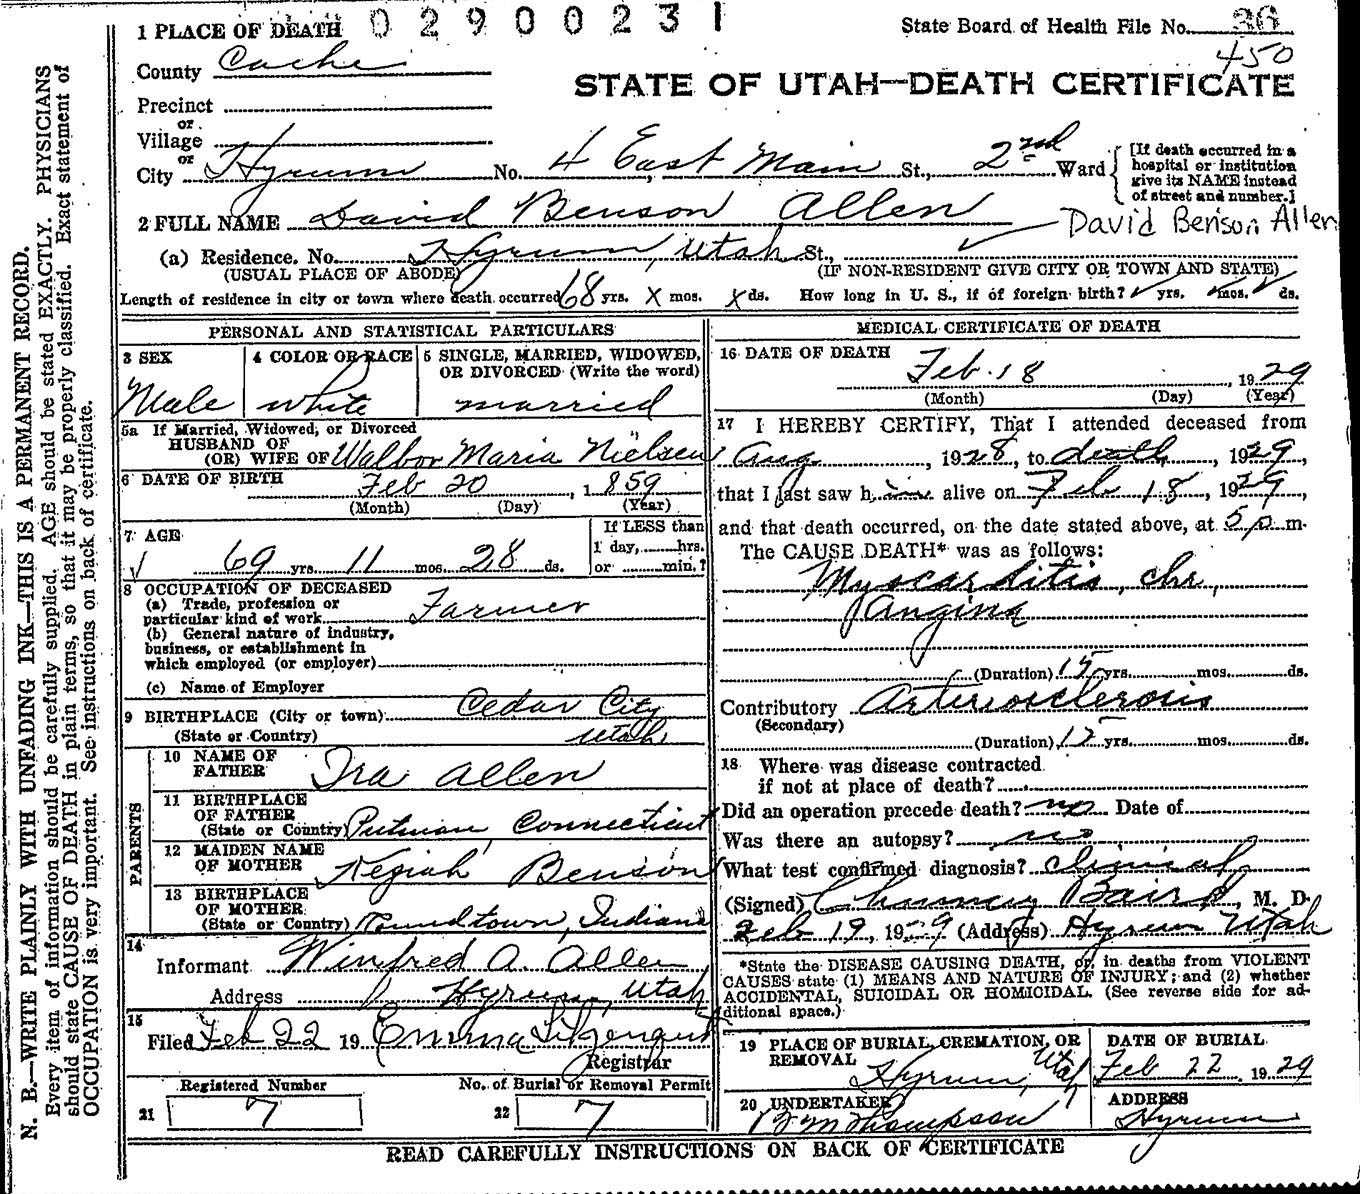 1 PLACE OF DEATH 0 2 9 0 0 2 3 1
State Board of Health File No. 36
450
County Cache
STATE OF UTAH—DEATH CERTIFICATE
Precinct
or
Village
or
City Hyrum No. 4 East Main St., 2nd Ward
[If death occurred in a
hospital or institution
give its NAME instead
of street and number.]
2 FULL NAME David Benson Allen
David Benson Allen
(a) Residence. No. Hyrum, Utah St.,
(USUAL PLACE OF ABODE) (IF NON-RESIDENT GIVE CITY OR TOWN AND STATE)
Length of residence in city or town where death occurred 68 yrs. x mos. x ds. How long in U. S., if of foreign birth? ✓ yrs. ✓ mos. ✓ ds.
PERSONAL AND STATISTICAL PARTICULARS
3 SEX
Male
4 COLOR OR RACE
White
5 SINGLE, MARRIED, WIDOWED,
OR DIVORCED (Write the word)
married
5a If Married, Widowed, or Divorced
HUSBAND OF
(OR) WIFE OF Walbor Maria Nielsen
6 DATE OF BIRTH Feb 20, 1859
(Month) (Day) (Year)
7 AGE
✓ 69 yrs. 11 mos. 28 ds.
If LESS than
1 day, hrs.
or min.?
8 OCCUPATION OF DECEASED
(a) Trade, profession or
particular kind of work Farmer
(b) General nature of industry,
business, or establishment in
which employed (or employer)
(c) Name of Employer
9 BIRTHPLACE (City or town) Cedar City
(State or Country) Utah
PARENTS
10 NAME OF
FATHER Ira Allen
11 BIRTHPLACE
OF FATHER
(State or Country) Putman, Connecticut
12 MAIDEN NAME
OF MOTHER Keziah Benson
13 BIRTHPLACE
OF MOTHER
(State or Country) Roundtown, Indiana
14
Informant Winfred A. Allen
Address Hyrum, Utah
15
Filed Feb 22 19 Emma
Registrar
Registered Number
21 7
No. of Burial or Removal Permit
22 7
MEDICAL CERTIFICATE OF DEATH
16 DATE OF DEATH
Feb. 18, 1929
(Month) (Day) (Year)
17 I HEREBY CERTIFY, That I attended deceased from
Aug, 1928, to death, 1929,
that I last saw him alive on Feb 18, 1929,
and that death occurred, on the date stated above, at 5 p m.
The CAUSE DEATH* was as follows:
Myocarditis, chr,
Angina
(Duration) 15 yrs. mos. ds.
Contributory Arteriosclerosis
(Secondary)
(Duration) 15 yrs. mos. ds.
18 Where was disease contracted
if not at place of death?
Did an operation precede death? no Date of
Was there an autopsy? no
What test confirmed diagnosis? clinical
(Signed) Chauncy Baird, M. D.
Feb 19, 1929 (Address) Hyrum Utah
*State the DISEASE CAUSING DEATH, or, in deaths from VIOLENT
CAUSES state (1) MEANS AND NATURE OF INJURY; and (2) whether
ACCIDENTAL, SUICIDAL OR HOMICIDAL. (See reverse side for ad-
ditional space.)
19 PLACE OF BURIAL, CREMATION, OR
REMOVAL
Hyrum, Utah
DATE OF BURIAL
Feb 22, 1929
20 UNDERTAKER
Thompson
ADDRESS
Hyrum
READ CAREFULLY INSTRUCTIONS ON BACK OF CERTIFICATE
N. B.—WRITE PLAINLY WITH UNFADING INK—THIS IS A PERMANENT RECORD.
Every item of information should be carefully supplied. AGE should be stated EXACTLY. PHYSICIANS
should state CAUSE OF DEATH in plain terms, so that it may be properly classified. Exact statement of
OCCUPATION is very important. See instructions on back of certificate.